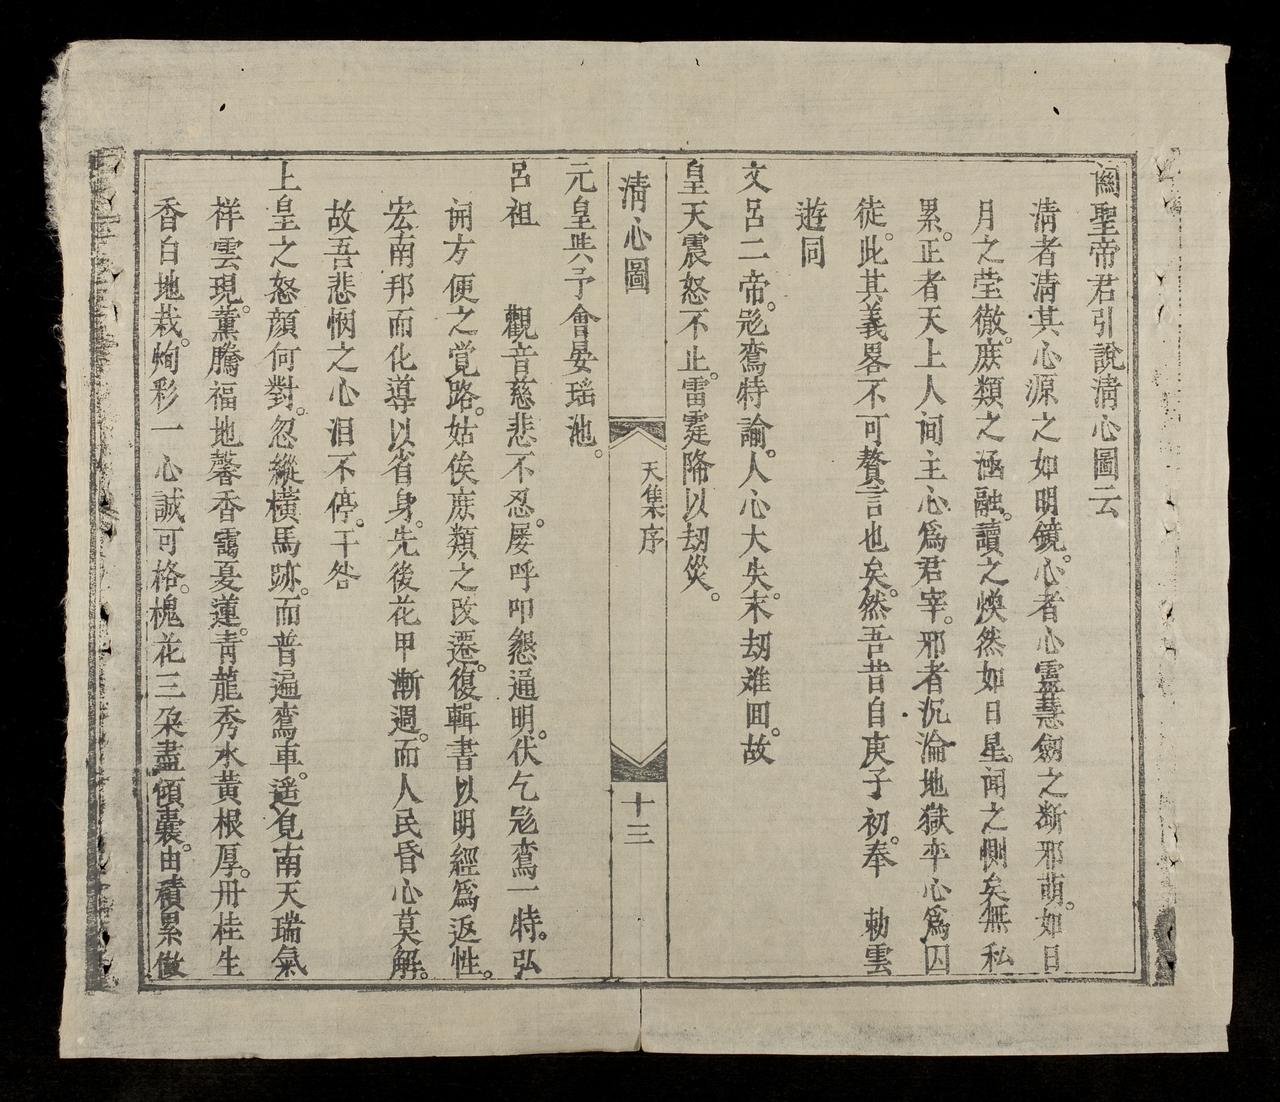 關聖帝君引說清心圖云
清者清其心源之如明鏡。心者心靈慧劍之斷邪萌。如日
月之莹徹。庶類之涵融。讀之煥然如日星。闻之惻矣無私
累。正者天上人间主心爲君宰。邪者沉淪地獄卒心爲囚
徒。此其義畧不可贅言也矣。然吾昔自庚子初。奉 勅雲
遊同
文呂二帝。跎鸞特諭。人心大失。末劫难囬。故
皇天震怒不止。雷霆降以劫災。
清心圖 天集序 十三
元皇共予會晏瑶池。
呂祖 觀音慈悲不忍。屡呼叩懇通明。伏乞跎鸞一特。弘
闹方便之覚路。姑俟庶類之改遷。復輯書以明經爲返性。
宏南邦而化導以省身。先後花甲漸週。而人民昏心莫解。
故吾悲悯之心泪不停。干咎
上皇之怒顔何對。忽縱横馬跡。而普遍鸞車。遥見南天瑞氣
祥雲現。薰騰福地馨香靄憂蓮。青龍秀水黄根厚。丹桂生
香白地栽。絢彩一心誠可格。槐花三朶盡傾囊。由積累傚